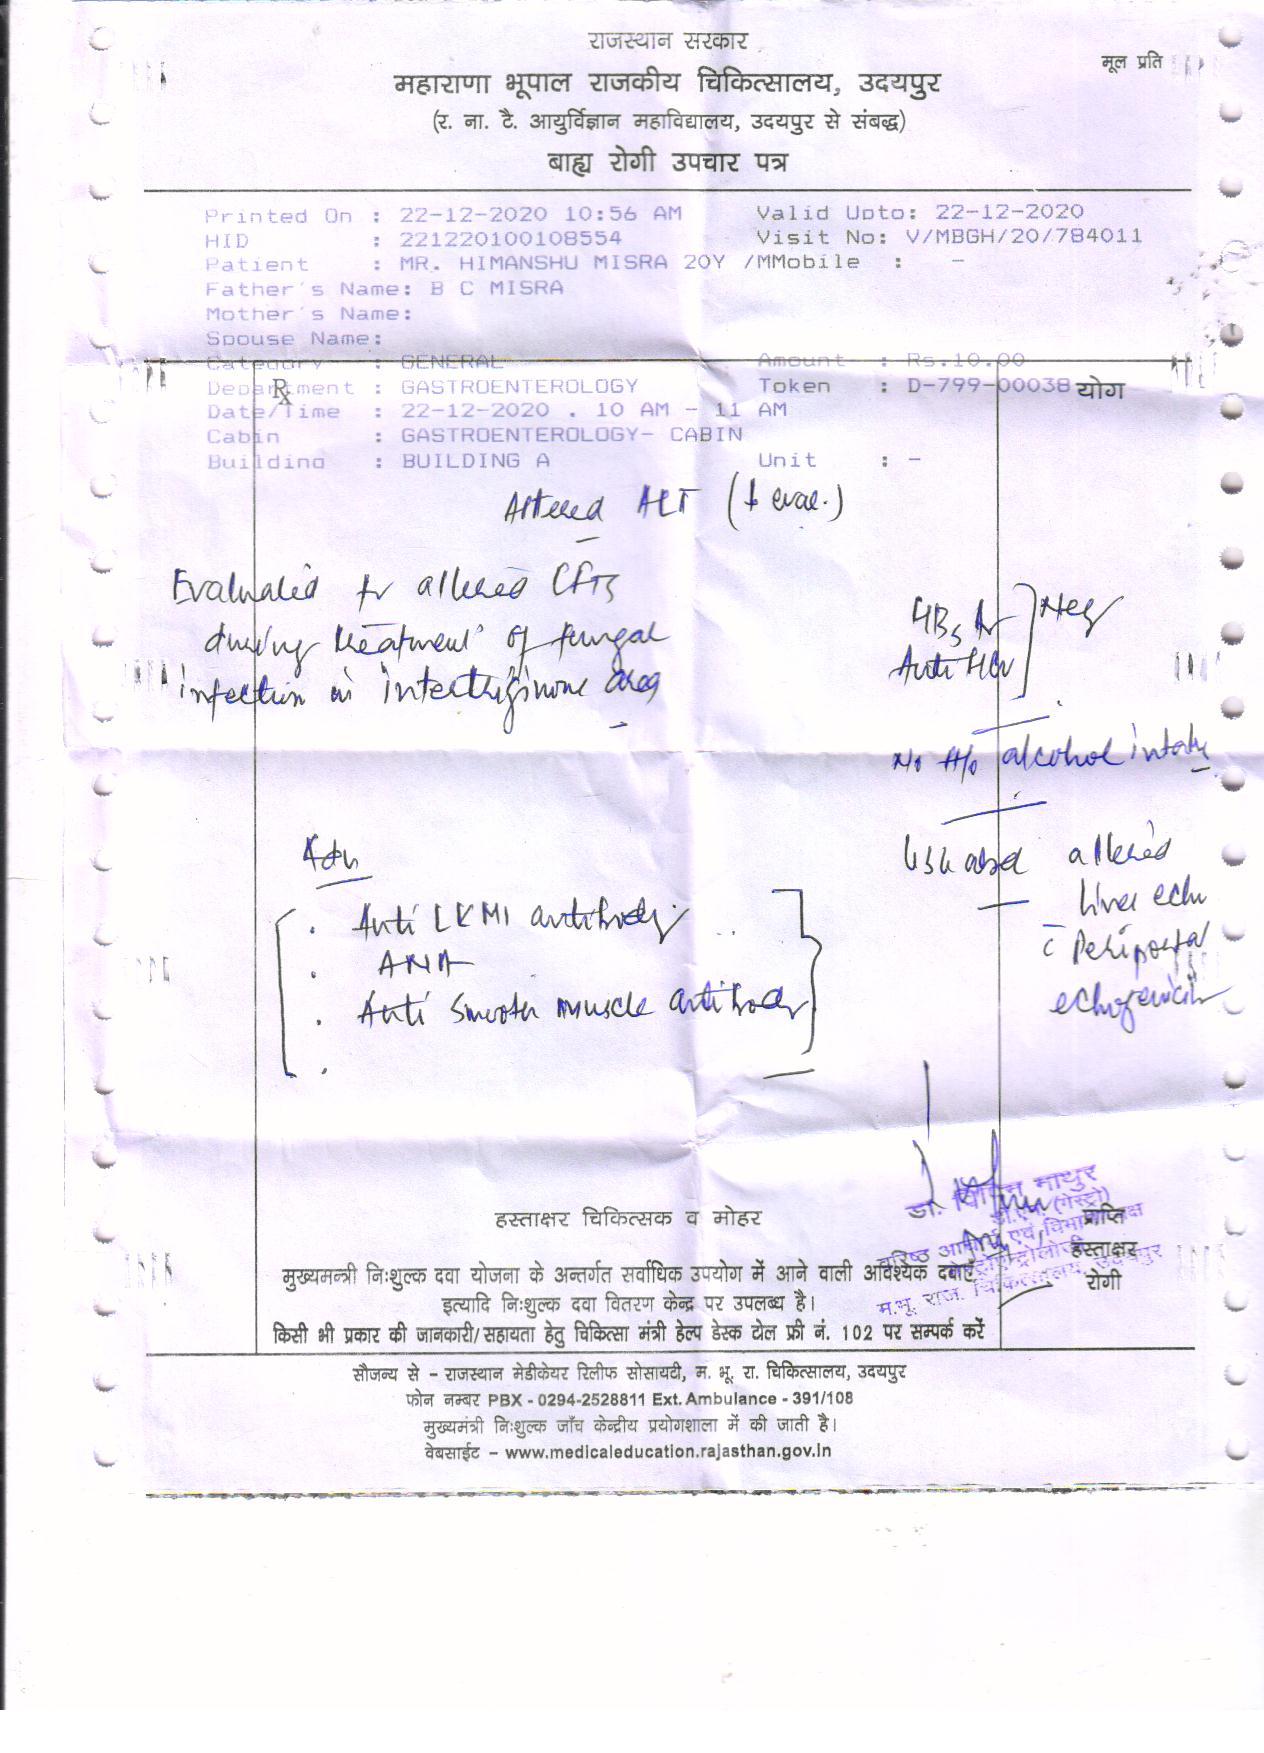 राजस्थान सरकार
मूल प्रति
महाराणा भूपाल राजकीय चिकित्सालय, उदयपुर
(र. ना. टै. आयुर्विज्ञान महाविद्यालय, उदयपुर से संबद्ध)
बाह्य रोगी उपचार पत्र
Printed On : 22-12-2020 10:56 AM Valid Upto: 22-12-2020
HID : 221220100108554 Visit No: V/MBGH/20/784011
Patient : MR. HIMANSHU MISRA 20Y /MMobile : -
Father's Name: B C MISRA
Mother's Name:
Spouse Name:
Category : GENERAL Amount : Rs.10.00
Department : GASTROENTEROLOGY Token : D-799-00038
℞ योग
Date/Time : 22-12-2020 . 10 AM - 11 AM
Cabin : GASTROENTEROLOGY- CABIN
Building : BUILDING A Unit : -
Altered ALT
Evaluated for altered LFTs
during treatment of fungal
infection in area
HBsA Neg
Anti HCV
No H/o alcohol intake
altered
liver echo
c̄ Periportal
echogenicity
Adv
. Anti LKM1 antibody
. ANA
. Anti Smooth muscle antibody
डॉ. विपिन माथुर
हस्ताक्षर चिकित्सक व मोहर
प्राप्ति
हस्ताक्षर
रोगी
म.भू. राज. चिकित्सालय, उदयपुर
मुख्यमन्त्री निःशुल्क दवा योजना के अन्तर्गत सर्वाधिक उपयोग में आने वाली आवश्यक दवाएँ
इत्यादि निःशुल्क दवा वितरण केन्द्र पर उपलब्ध है।
किसी भी प्रकार की जानकारी/सहायता हेतु चिकित्सा मंत्री हेल्प डेस्क टोल फ्री नं. 102 पर सम्पर्क करें
सौजन्य से – राजस्थान मेडीकेयर रिलीफ सोसायटी, म. भू. रा. चिकित्सालय, उदयपुर
फोन नम्बर PBX - 0294-2528811 Ext. Ambulance - 391/108
मुख्यमंत्री निःशुल्क जाँच केन्द्रीय प्रयोगशाला में की जाती है।
वेबसाईट – www.medicaleducation.rajasthan.gov.in